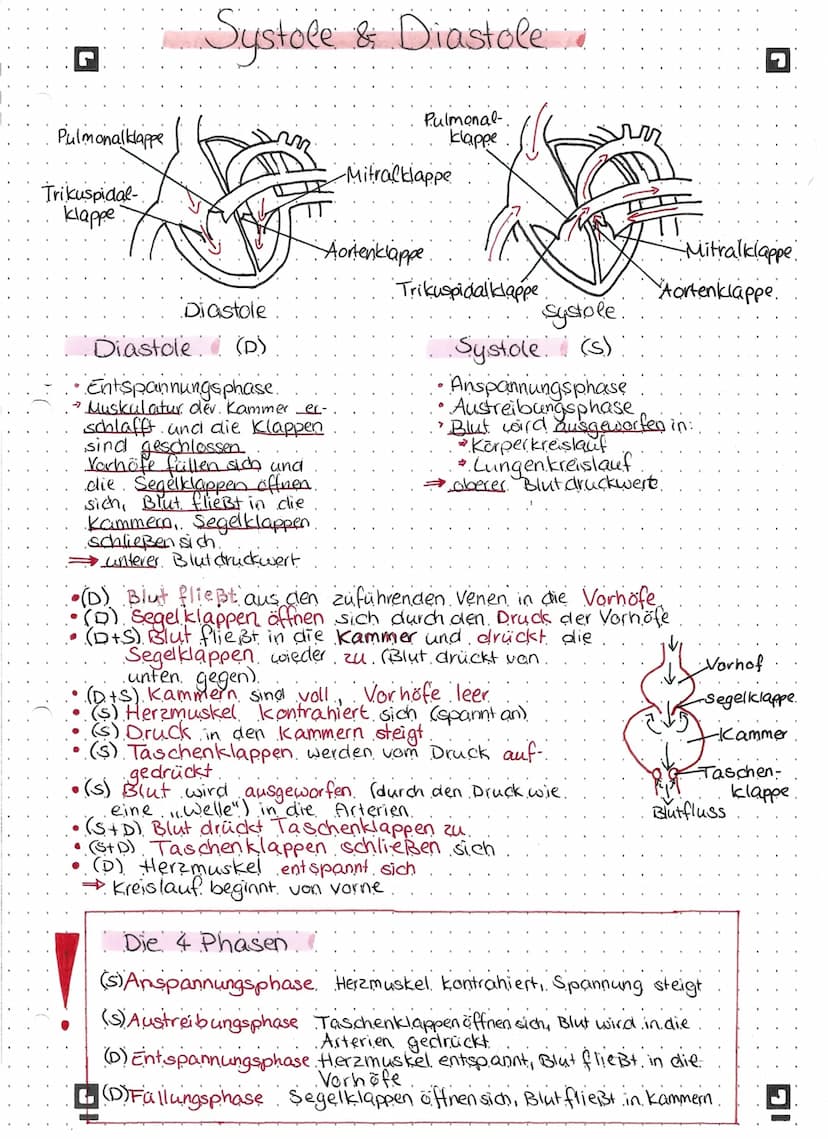 Systole & Diastole
Pulmonalklappe
Trikuspidal-
klappe
Mitralklappe
Aortenklappe
Diastole
Pulmonal-
klappe
Mitralklappe
Trikuspidalklappe
Aortenklappe
Systole
Diastole (D)
• Entspannungsphase
→ Muskulatur der Kammer er-
schlafft und die Klappen
sind geschlossen
Vorhöfe füllen sich und
die Segelklappen öffnen
sich, Blut fließt in die
Kammern, Segelklappen
schließen sich.
⇒ unterer Blutdruckwert
Systole (S)
• Anspannungsphase
• Austreibungsphase
→ Blut wird ausgeworfen in:
→ Körperkreislauf
→ Lungenkreislauf
⇒ oberer Blutdruckwert
• (D) Blut fließt aus den zuführenden Venen in die Vorhöfe
• (D) Segelklappen öffnen sich durch den Druck der Vorhöfe
• (D+S) Blut fließt in die Kammer und drückt die
Segelklappen wieder zu (Blut drückt von
unten gegen)
• (D+S) Kammern sind voll, Vorhöfe leer
• (S) Herzmuskel kontrahiert sich (spannt an)
• (S) Druck in den Kammern steigt
• (S) Taschenklappen werden vom Druck auf-
gedrückt
• (S) Blut wird ausgeworfen (durch den Druck wie
eine „Welle") in die Arterien
• (S+D) Blut drückt Taschenklappen zu
• (S+D) Taschenklappen schließen sich
• (D) Herzmuskel entspannt sich
⇒ Kreislauf beginnt von vorne
Vorhof
Segelklappe
Kammer
Taschen-
klappe
Blutfluss
!
Die 4 Phasen
(S) Anspannungsphase Herzmuskel kontrahiert, Spannung steigt
(S) Austreibungsphase Taschenklappen öffnen sich, Blut wird in die
Arterien gedrückt
(D) Entspannungsphase Herzmuskel entspannt, Blut fließt in die
Vorhöfe
(D) Füllungsphase Segelklappen öffnen sich, Blut fließt in Kammern